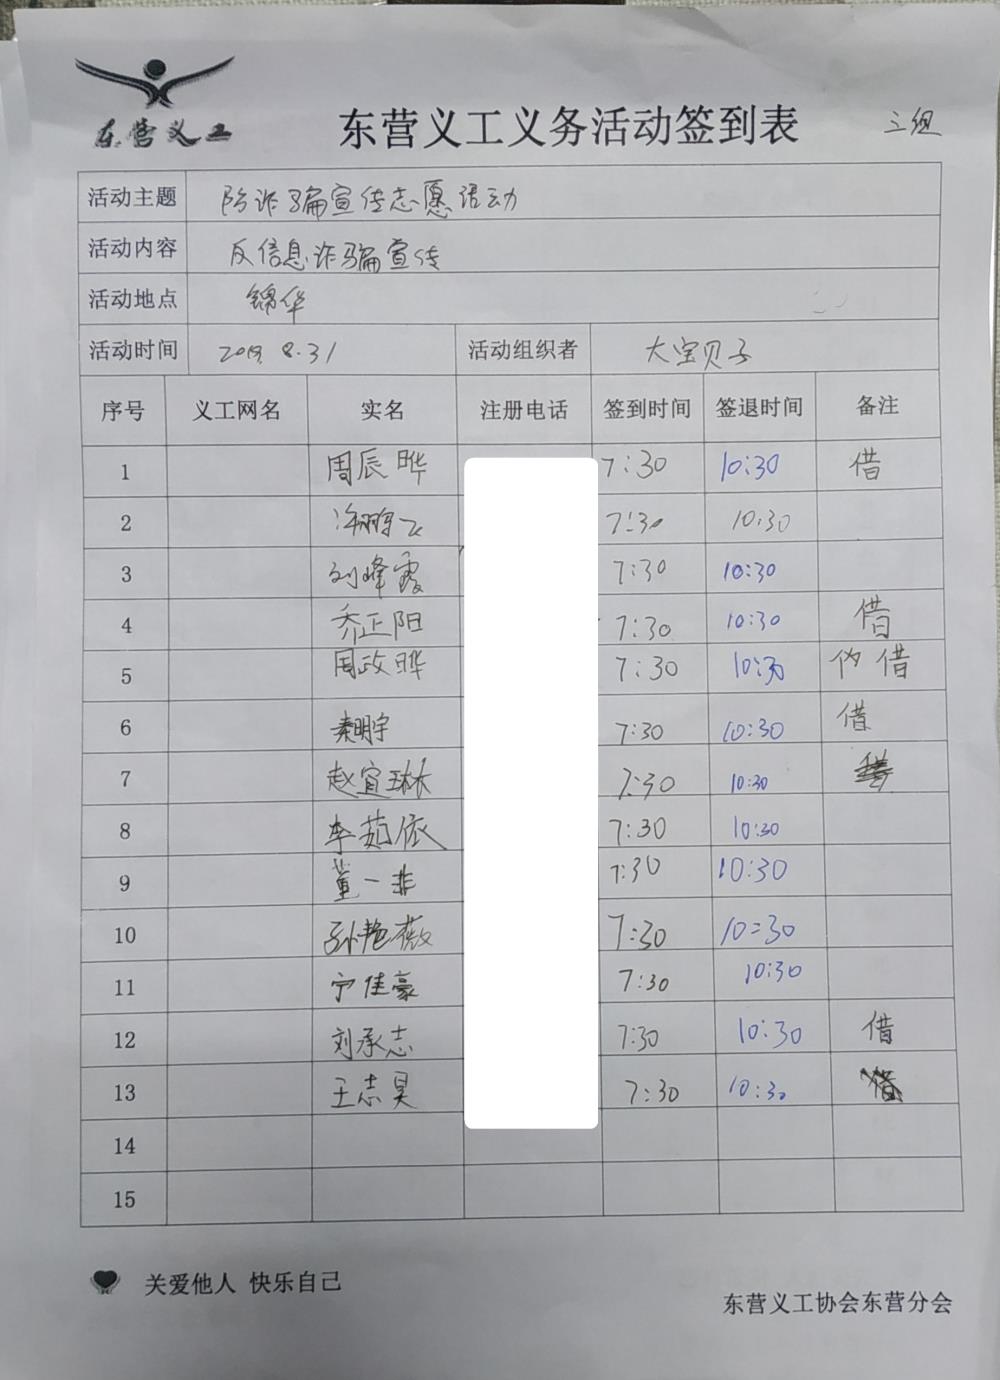 东营义工
东营义工义务活动签到表 三组
活动主题 防诈骗宣传志愿活动
活动内容 反信息诈骗宣传
活动地点 锦华
活动时间 2019. 8.31 活动组织者 大宝贝子
序号 义工网名 实名 注册电话 签到时间 签退时间 备注
1 周辰晔 7:30 10:30 借
2 许鹏飞 7:30 10:30
3 刘峰霞 7:30 10:30
4 乔正阳 7:30 10:30 借
5 周政晔 7:30 10:30 借
6 秦明宇 7:30 10:30 借
7 赵宜琳 7:30 10:30
8 李茹依 7:30 10:30
9 董一非 7:30 10:30
10 孙艳薇 7:30 10:30
11 宁佳豪 7:30 10:30
12 刘承志 7:30 10:30 借
13 王志昊 7:30 10:30
14
15
关爱他人 快乐自己
东营义工协会东营分会